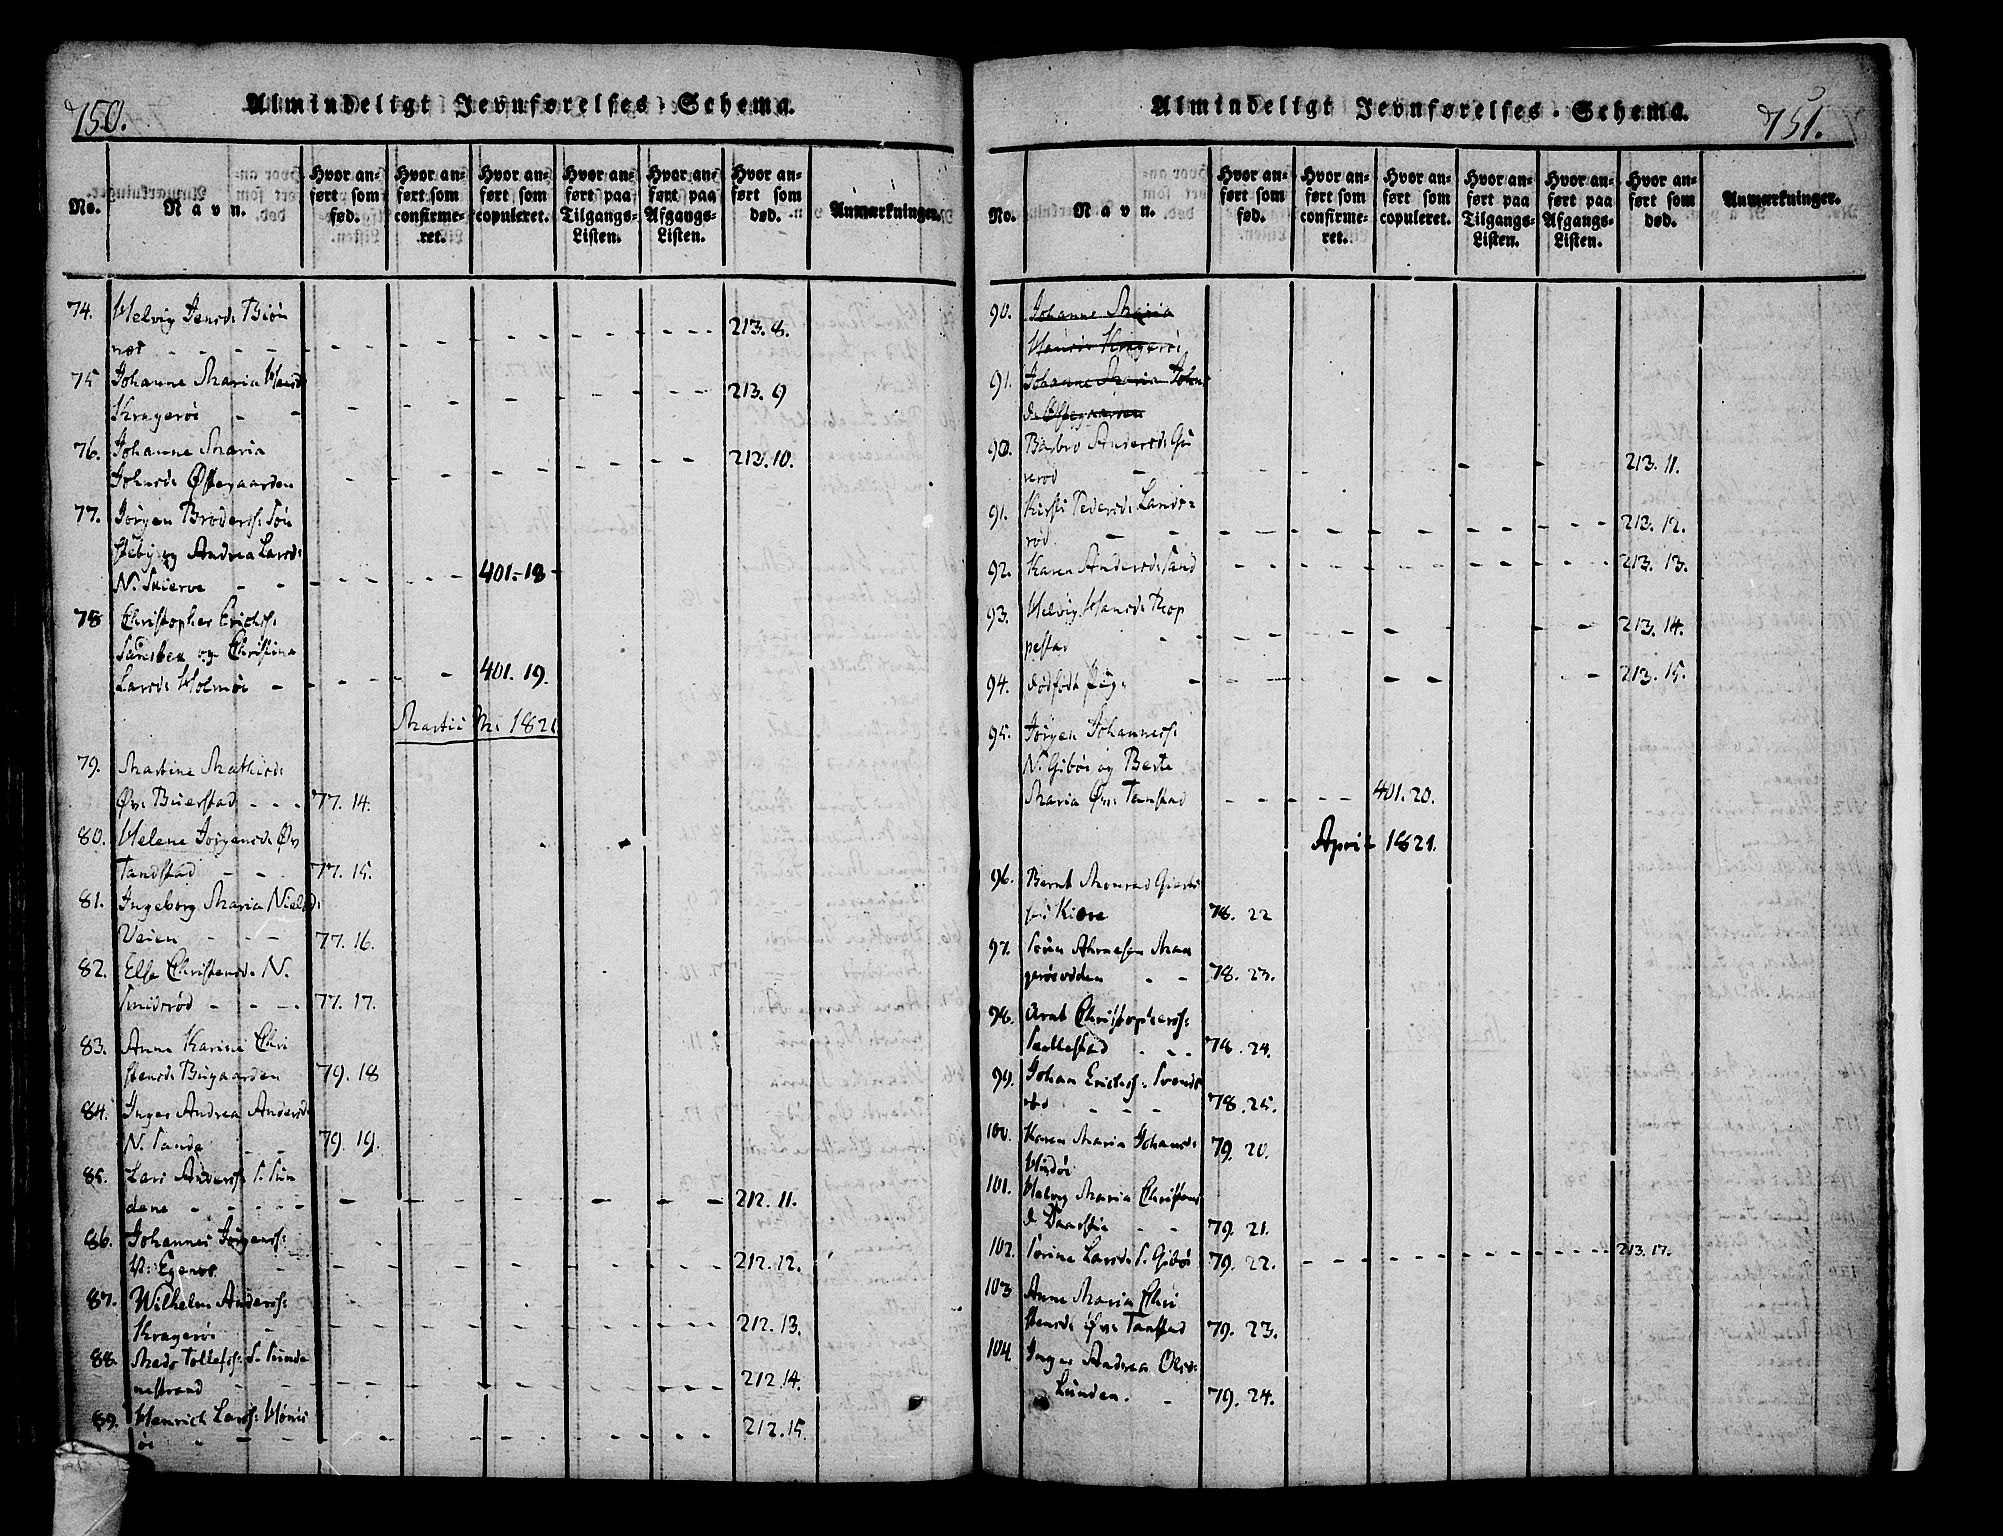 750.
Almindeligt Jevnførelses-Schema.
No.
Navn.
Hvor anført som fød.
Hvor anført som confirmeret.
Hvor anført som copuleret.
Hvor anført paa Tilgangs-Listen.
Hvor anført paa Afgangs-Listen.
Hvor anført som død.
Anmærkninger.
74. Helvig Jensd:
213. 8.
75 Johanne Maria Hansd:
Kragerøi - - 213. 9
76. Johanne Maria
Johnsd: Østegaarden 213. 10.
77. Jørgen Broderss:
og Andrea Larsd:
N. Skierve - - 401.-18-
78 Christopher Erichss:
og Christina
Larsd: Holmøi - 401. 19.
Martii M: 1821.
79. Martine Mathisd:
Øv: Buerstad - - - 77. 14.
80. Helene Jørgensd: Øv
Tandstad - - 77. 15.
81. Ingeborg Maria Nielsd:
Veien - - - 77. 16.
82. Else Christensd: N.
Smidsrød - - - - 77. 17.
83. Anne Karine Chri
stensd: Bugaarden 79. 18
84. Inger Andrea Andersd:
N. Sande - - 79. 19.
85. Lars Anderss: S. Sun
dene - - - - - 212. 11.
86. Johannes Jørgenss:
V: Egenes 212. 12.
87. Wilhelm Anderss:
Kragerøi - 212. 13.
88. Mads Tollefss: S. Sunde
nestrand 212. 14.
89. Henrich Larss:
øi - - 212. 15.
751.
Almindeligt Jevnførelses-Schema.
No.
Navn.
Hvor anført som fød.
Hvor anført som confirmeret.
Hvor anført som copuleret.
Hvor anført paa Tilgangs-Listen.
Hvor anført paa Afgangs-Listen.
Hvor anført som død.
Anmærkninger.
90. Johanne Maria
Hansd: Kragerøi
91. Johanne Maria Johns
d: Østegaarden
90. Barbro Andersd: Gu
rerød 213. 11.
91. Kirsti Pedersd: Lands-
rød 213. 12.
92. Karen Andersd: Sand 213. 13.
93. Helvig Hansd: Rop
pestad 213. 14.
94. dødfødt Pig: 213. 15.
95. Jørgen Johanness:
N. Gibøe og Berte
Maria Øv: Tanstad 401. 20.
April 1821.
96. Bernt Monrad
78. 22
97. Søren
78. 23.
98. Arnt Christopherss:
78. 24.
99. Johan Erichss: Svends
rød - - - 78. 25.
100. Karen Maria Johansd:
79. 20.
101. Helvig Maria Christens
d: - - 79. 21.
102. Sørine Larsd: S. Gibøi 79. 22. 213. 17.
103 Anne Maria Chri
stensd: Øv: Tanstad 79. 23.
104. Inger Andrea Olsd:
Lunden. - 79. 24.